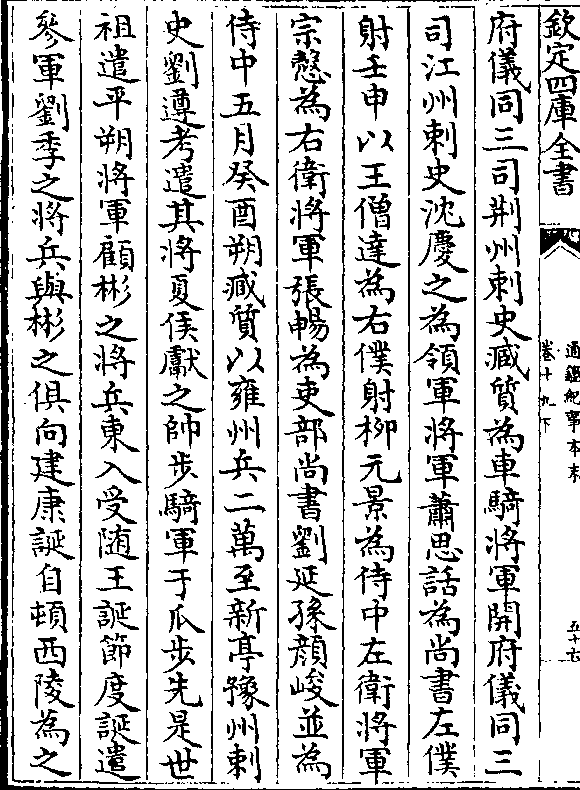 欽定四庫全書
通鑑紀事本末
卷十九下
五十七
府儀同三司荆州刺史臧質為車騎將軍開府儀同三
司江州刺史沈慶之為領軍將軍蕭思話為尚書左僕
射壬申以王僧達為右僕射柳元景為侍中左衛將軍
宗慤為右衛將軍張暢為吏部尚書劉延孫顔峻並為
侍中五月癸酉朔臧質以雍州兵二萬至新亭豫州刺
史劉遵考遣其將夏侯獻之帥步騎軍于瓜步先是世
祖遣平朔將軍顧彬之將兵東入受随王誕節度誕遣
參軍劉季之將兵與彬之俱向建康誕自頓西陵為之